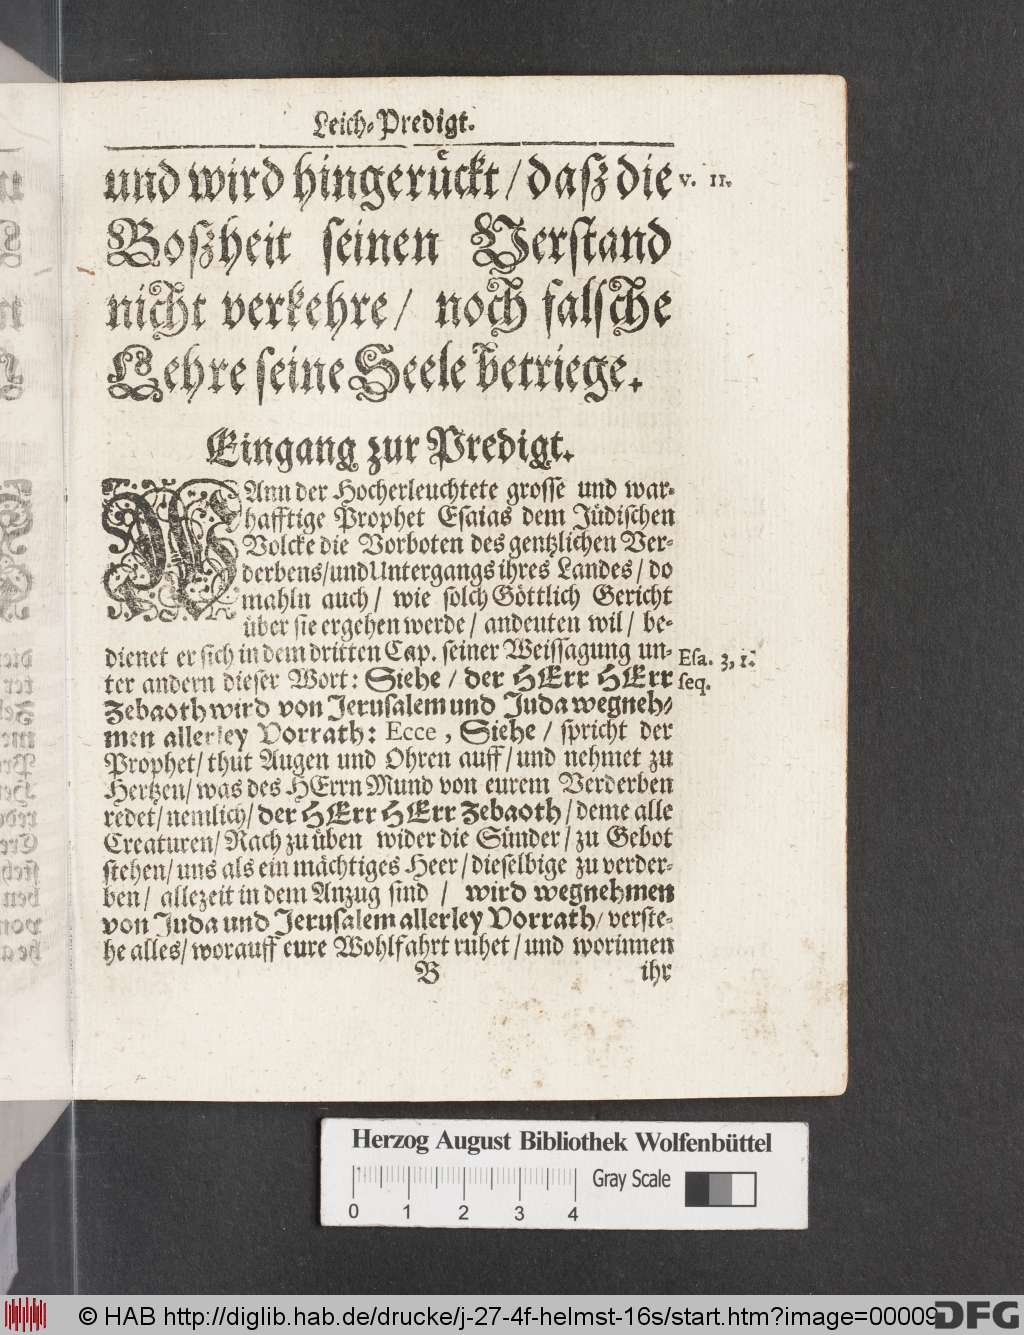 Leich-Predigt.
und wird hingerückt / daß die v. 11.
Boßheit seinen Verstand
nicht verkehre / noch falsche
Lehre seine Seele betriege.
Eingang zur Predigt.
WAnn der Hocherleuchtete grosse und war-
hafftige Prophet Esaias dem Jüdischen
Volcke die Vorboten des gentzlichen Ver-
derbens / und Untergangs ihres Landes / do
mahln auch / wie solch Göttlich Gericht
über sie ergehen werde / andeuten wil / be-
dienet er sich in dem dritten Cap. seiner Weissagung un- Esa. 3, 1.
ter andern dieser Wort: Siehe / der HErr HErr seq.
Zebaoth wird von Jerusalem und Juda wegneh-
men allerley Vorrath: Ecce, Siehe / spricht der
Prophet / thut Augen und Ohren auff / und nehmet zu
Hertzen / was des HErrn Mund von eurem Verderben
redet / nemlich / der HErr HErr Zebaoth / deme alle
Creaturen / Rach zu üben wider die Sünder / zu Gebot
stehen / uns als ein mächtiges Heer / dieselbige zu verder-
ben / allezeit in dem Anzug sind / wird wegnehmen
von Juda und Jerusalem allerley Vorrath / verste-
he alles / worauff eure Wohlfahrt ruhet / und worinnen
B ihr
Herzog August Bibliothek Wolfenbüttel
Gray Scale
0 1 2 3 4
© HAB http://diglib.hab.de/drucke/j-27-4f-helmst-16s/start.htm?image=00009
DFG